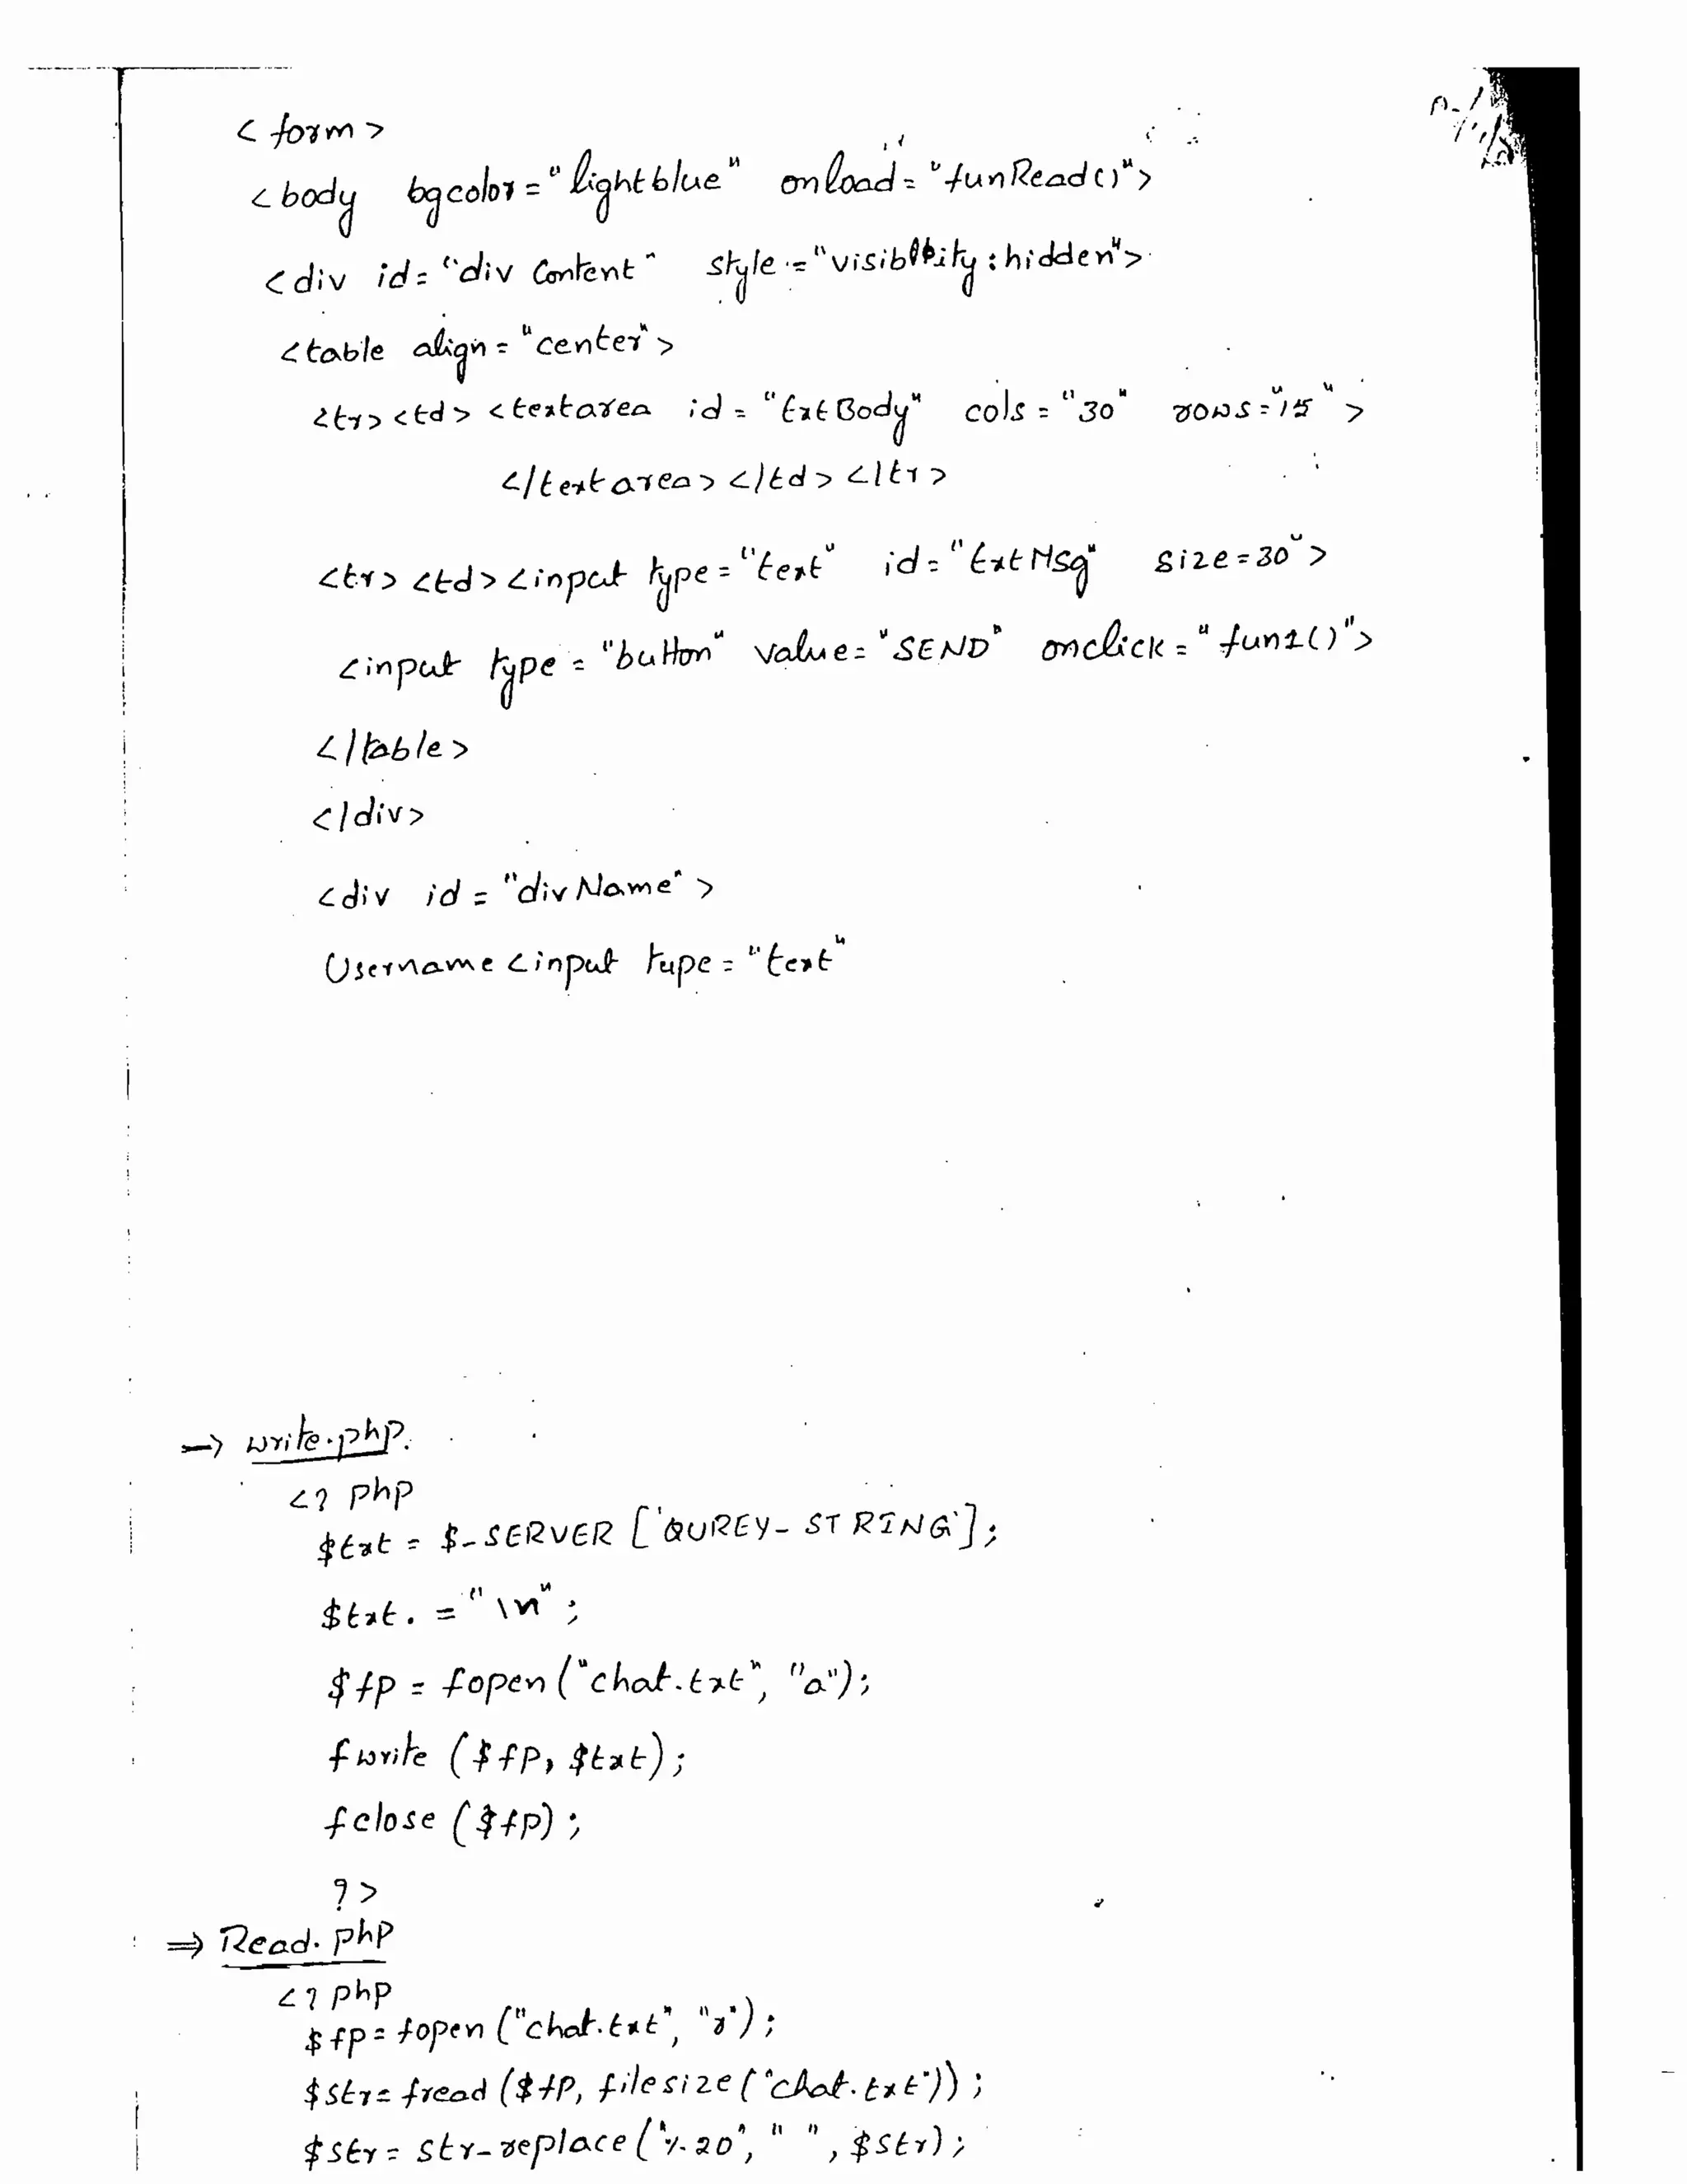 < form >
< body bgcolor = "lightblue" onload = "funRead()">
< div id = "div Content" style = "visibility : hidden">
<table align = "center" >
<tr> <td> <textarea id = "txtBody" cols = "30" rows = "15" >
</textarea> </td> </tr>
<tr> <td> <input type = "text" id = "txtMsg" size = 30" >
<input type = "button" value = "SEND" onclick = "fun1()">
</table>
</div>
<div id = "divName" >
Username <input type = "text"
→ write.php.
<? php
$txt = $_SERVER ['QUREY_STRING'];
$txt . = "\n" ;
$fp = fopen ("chat.txt", "a");
fwrite ($fp, $txt) ;
fclose ($fp) ;
? >
⇒ Read.php
<? php
$fp = fopen ("chat.txt", "r") ;
$str = fread ($fp, filesize ("chat.txt")) ;
$str = str_replace ('%20', " ", $str) ;